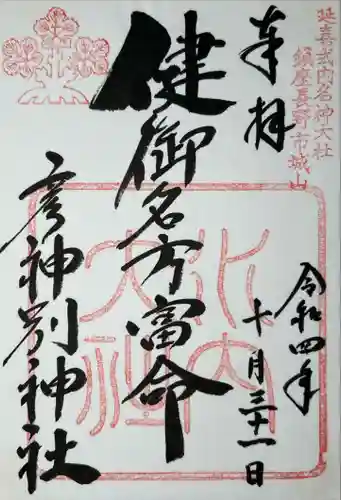 延喜式内名神大社
鎮座長野市城山
奉拝
健御名方富命
彦神別神社
令和四年
十月三十一日